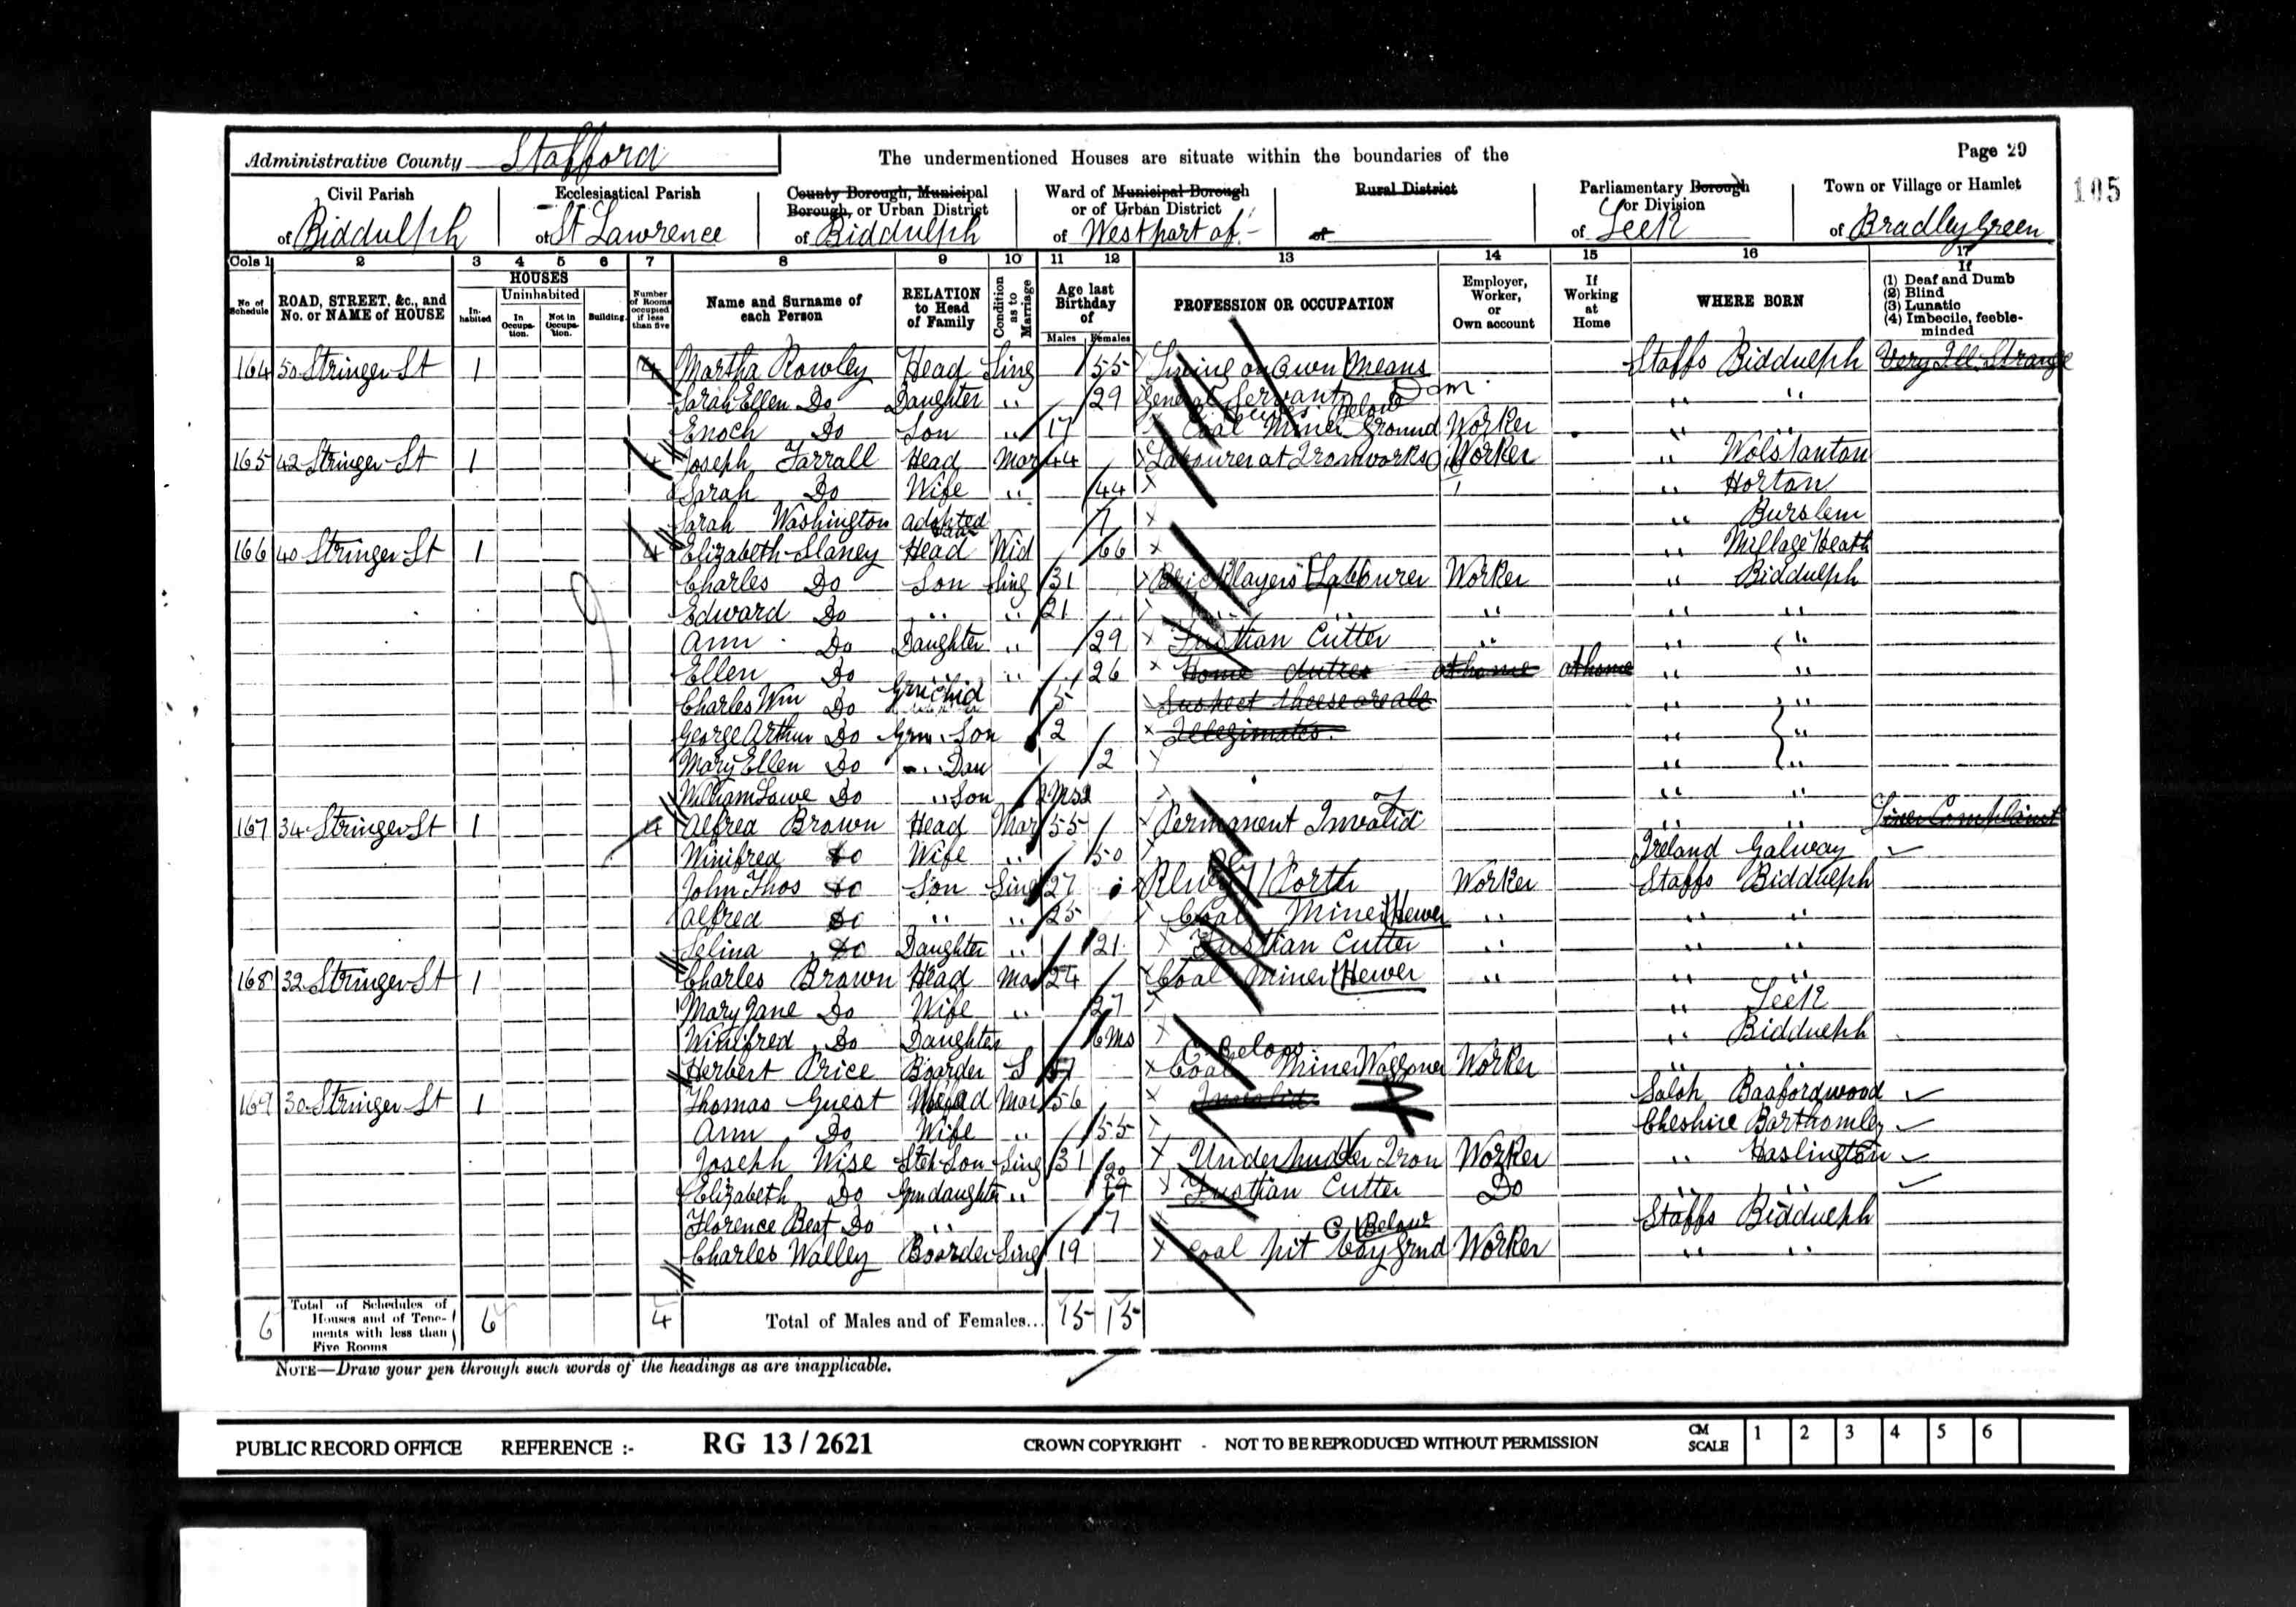 Administrative County Stafford The undermentioned Houses are situate within the boundaries of the Page 29
105
Civil Parish of Biddulph Ecclesiastical Parish of St Lawrence County Borough, Municipal Borough, or Urban District of Biddulph Ward of Municipal Borough or of Urban District of West part of Rural District of Parliamentary Borough or Division of Leek Town or Village or Hamlet of Bradley Green
Cols 1 2 3 4 5 6 7 8 9 10 11 12 13 14 15 16 17
No. of Schedule ROAD, STREET, &c., and No. or NAME of HOUSE HOUSES Inhabited Uninhabited In Occupation. Not in Occupation. Building. Number of Rooms occupied if less than five Name and Surname of each Person RELATION to Head of Family Condition as to Marriage Age last Birthday of Males Females PROFESSION OR OCCUPATION Employer, Worker, or Own account If Working at Home WHERE BORN If (1) Deaf and Dumb (2) Blind (3) Lunatic (4) Imbecile, feeble-minded
164 50 Stringer St 1 4 Martha Rowley Head Sing 55 Living on Own Means Staffs Biddulph Very Ill Strange
Sarah Ellen Do Daughter " 29 General Servant Dom " "
Enoch Do Son " 17 Coal Miner Below Ground Worker " "
165 42 Stringer St 1 4 Joseph Farrall Head Mar 44 Labourer at Ironworks Worker " Wolstanton
Sarah Do Wife " 44 " Horton
Sarah Washington adopted Daur 7 " Burslem
166 40 Stringer St 1 4 Elizabeth Slaney Head Wid 66 " Heath
Charles Do Son Sing 31 Bricklayers Labourer Worker " Biddulph
Edward Do " " 21 " " " " "
Ann Do Daughter " 29 Fustian Cutter " " "
Ellen Do " " 26 Home duties at home at home " "
Charles Wm Do 5 Suspect these are all " "
George Arthur Do Grn Son 2 Illegimates. " "
Mary Ellen Do " Dau 2 " "
William Lowe Do " Son " "
167 34 Stringer St 1 4 Alfred Brown Head Mar 55 Permanent Invalid " " Liver Complaint
Winifred do Wife " 50 Ireland Galway
John Thos do Son Sing 27 Rlwy Porth Worker Staffs Biddulph
Alfred do " " 25 Coal Miner Hewer " " "
Selina do Daughter " 21 Fustian Cutter " " "
168 32 Stringer St 1 Charles Brown Head Mar 24 Coal Miner Hewer " " "
Mary Jane Do Wife " 27 " Leek
Winifred Do Daughter 6 Ms " Biddulph
Herbert Price Boarder S Coal Miner Below Waggoner Worker " "
169 30 Stringer St 1 Thomas Guest Head Mar 56 Invalid Saloh Basfordwood
Ann Do Wife " 55 Cheshire Barthomley
Joseph Wise Step Son Sing 31 Underhudler Iron Worker " Haslington
Elizabeth Do Grndaughter " 20 19 Fustian Cutter Do " "
Florence Beat Do " 7 Staffs Biddulph
Charles Walley Boarder Sing 19 Coal pit Boy Below Grnd Worker " "
6 Total of Schedules of Houses and of Tenements with less than Five Rooms 6 4 Total of Males and of Females... 15 15
NOTE—Draw your pen through such words of the headings as are inapplicable.
PUBLIC RECORD OFFICE REFERENCE :- RG 13 / 2621 CROWN COPYRIGHT - NOT TO BE REPRODUCED WITHOUT PERMISSION CM SCALE 1 2 3 4 5 6